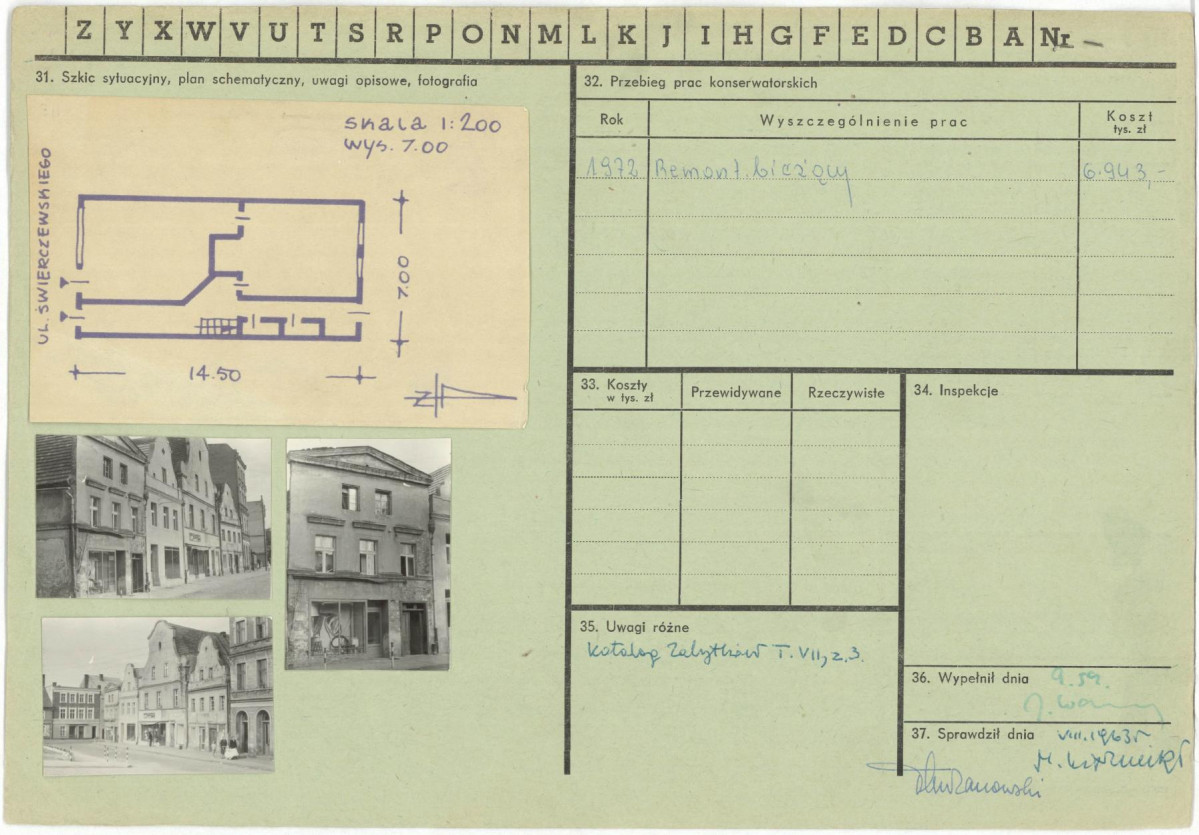 Z Y X W V U T S R P O N M L K J I H G F E D C B A Nr –
31. Szkic sytuacyjny, plan schematyczny, uwagi opisowe, fotografia
skala 1:200
wys. 7.00
UL. ŚWIERCZEWSKIEGO
7.00
14.50
Z
32. Przebieg prac konserwatorskich
Rok
Wyszczególnienie prac
Koszt
tys. zł
1972 Remont bieżący 6.943,-
33. Koszty
w tys. zł
Przewidywane
Rzeczywiste
34. Inspekcje
35. Uwagi różne
Katalog Zabytków T. VII, z. 3.
36. Wypełnił dnia 9.59.
37. Sprawdził dnia VIII.1963r